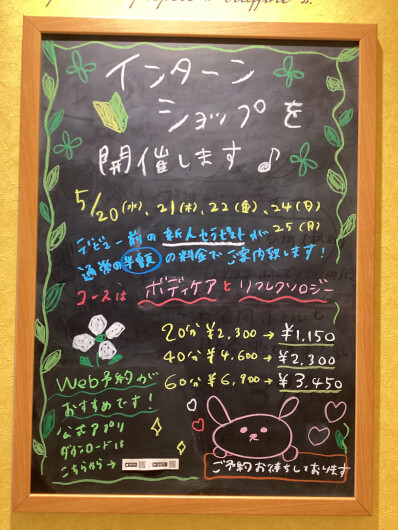 インターン
ショップを
開催します♪
5/20(水)、21(木)、22(金)、24(日)
25(月)
デビュー前の新人セラピストが
通常の半額の料金でご案内致します!
コースは ボディケアとリフレクソロジー
20分 ¥2,300→¥1,150
40分 ¥4,600→¥2,300
60分 ¥6,900→¥3,450
Web予約が
おすすめです!
公式アプリ
ダウンロードは
こちらから→
ご予約お待ちしております